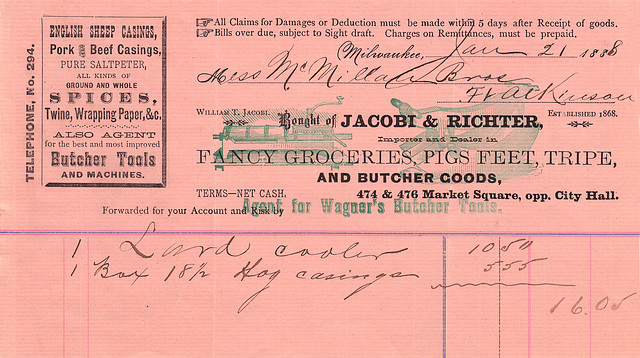 TELEPHONE, No. 294.
ENGLISH SHEEP CASINGS,
Pork and Beef Casings,
PURE SALTPETER,
ALL KINDS OF
GROUND AND WHOLE
SPICES,
Twine, Wrapping Paper, &c.
ALSO AGENT
for the best and most improved
Butcher Tools
AND MACHINES.
All Claims for Damages or Deduction must be made within 5 days after Receipt of goods.
Bills over due, subject to Sight draft. Charges on Remittances, must be prepaid.
Milwaukee, Jan 21 1888
Mess McMillan Bros
Ft Atkinson
WILLIAM T. JACOBI.
ESTABLISHED 1868.
Bought of JACOBI & RICHTER,
Importer and Dealer in
FANCY GROCERIES, PIGS FEET, TRIPE,
AND BUTCHER GOODS,
TERMS—NET CASH.
474 & 476 Market Square, opp. City Hall.
Agent for Wagner's Butcher Tools.
Forwarded for your Account and Risk by
1 Lard cooler 10 50
1 Box 18½ Hog casings 5 55
16.05